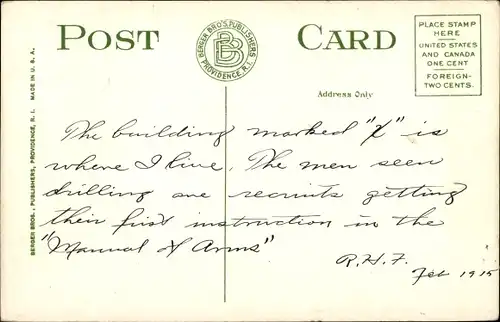 POST CARD
BERGER BRO'S. PUBLISHERS
BB
PROVIDENCE, R.I.
PLACE STAMP
HERE
UNITED STATES
AND CANADA
ONE CENT
FOREIGN-
TWO CENTS.
Address Only
BERGER BROS., PUBLISHERS, PROVIDENCE, R. I. MADE IN U. S. A.
The building marked "X" is
where I live. The men seen
drilling are recruits getting
their first instruction in the
"Manual of Arms"
R.H.F.
Feb 1915